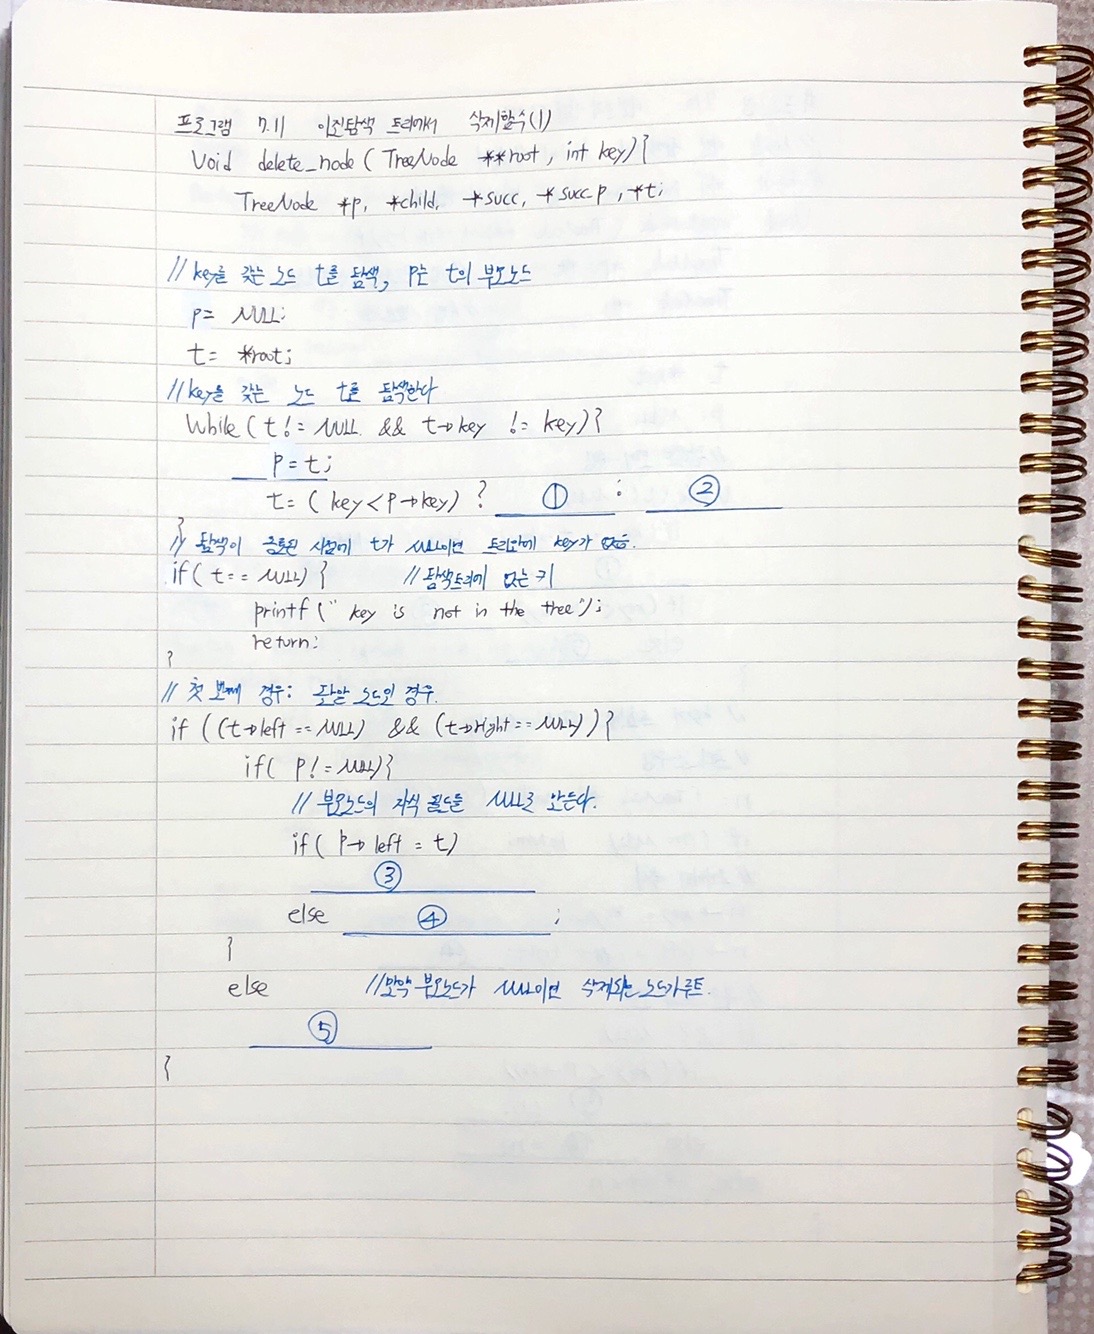 프로그램 7.11 이진탐색 트리에서 삭제함수(1)
Void delete_node ( TreeNode **root, int key){
TreeNode *p, *child, *succ, *succ_p, *t;
// key를 갖는 노드 t를 탐색, P는 t의 부모노드
p= NULL;
t= *root;
// key를 갖는 노드 t를 탐색한다
While ( t != NULL && t→key != key){
P = t;
t= ( key < P→key) ? ① : ②
}
// 탐색이 종료된 시점에 t가 NULL이면 트리안에 key가 없음.
if( t== NULL) { // 탐색트리에 없는 키
printf (" key is not in the tree");
return;
}
// 첫 번째 경우: 단말 노드인 경우.
if ((t→left == NULL) && (t→right == NULL)){
if( P != NULL){
// 부모노드의 자식 필드를 NULL로 만든다.
if( P→ left = t)
③
else ④ ;
}
else //만약 부모노드가 NULL이면 삭제되는 노드가 루트.
⑤
}